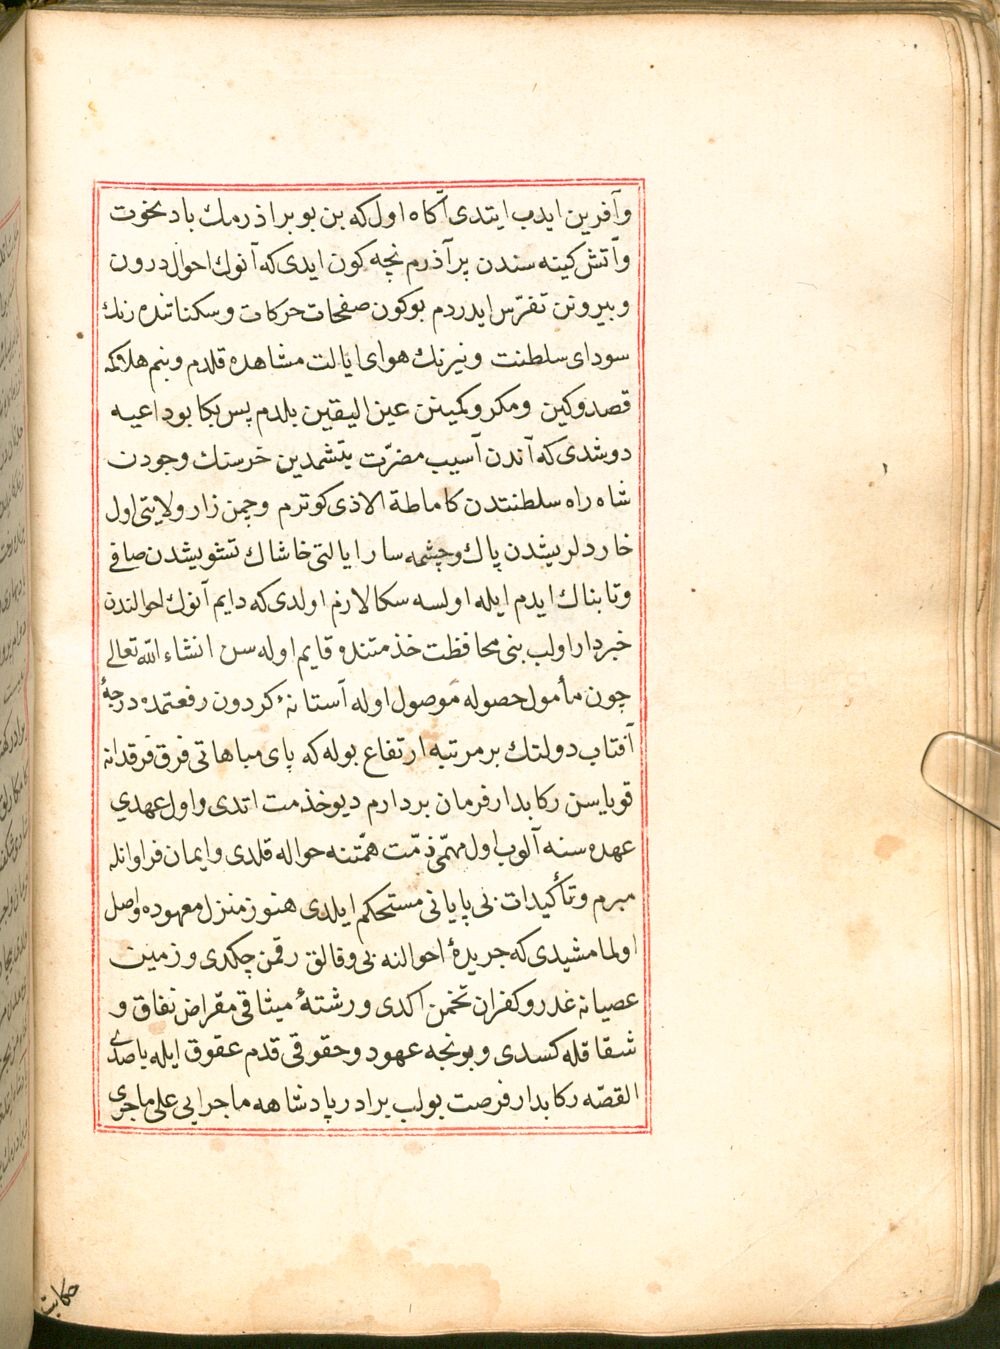 وآفرین ایدب ایتدی آگاه اول که بن بو برادرمك باد نخوت
وآتش کینه سندن پر آذرم نچه کون ایدی که آنوك احوال درون
وبیرونن تفرّس ایدردم بوکون صفحات حرکات وسکناتنده رنك
سودای سلطنت ونیرنك هوای ایالت مشاهده قلدم وبنم هلاکمه
قصد وکین ومکر وکمینن عین الیقین بلدم پس بکا بو داعیه
دوشدی که آندن آسیب مضرّت یتشمدین خرسنك وجودن
شاه راه سلطنتدن کاماطة الاذی کوترم وچمن زار ولایتی اول
خار دلریشدن پاك وچشمه سار ایالتی خاشاك تشویشدن صافی
وتابناك ایدم ایله اولسه سکا لازم اولدی که دایم آنوك احوالندن
خبردار اولب بنی محافظت خذمتنده قایم اوله سن انشاء الله تعالی
چون مأمول حصوله موصول اوله آستانهٔ کردون رفعتمده درجهٔ
آفتاب دولتك بر مرتبه ارتفاع بوله که پای مباهاتی فرق فرقدانه
قویاسن رکابدار فرمان بردارم دیو خذمت اتدی واول عهدی
عهده سنه آلوب اول مهمّی ذمّت همّتنه حواله قلدی وایمان فراوانله
مبرم وتأکیدات بی پایانی مستحکم ایلدی هنوز منزل معهوده واصل
اولمامشیدی که جریدهٔ احوالنه بی وفالق رقمن چکدی وزمین
عصیانه غدر وکفران تخمن اکدی ورشتهٔ میثاقی مقراض نفاق و
شقاقله کسدی وبونجه عهود وحقوقی قدم عقوق ایله باصدی
القصّه رکابدار فرصت بولب برادر پادشاهه ماجرایی علی ماجری
حکایت